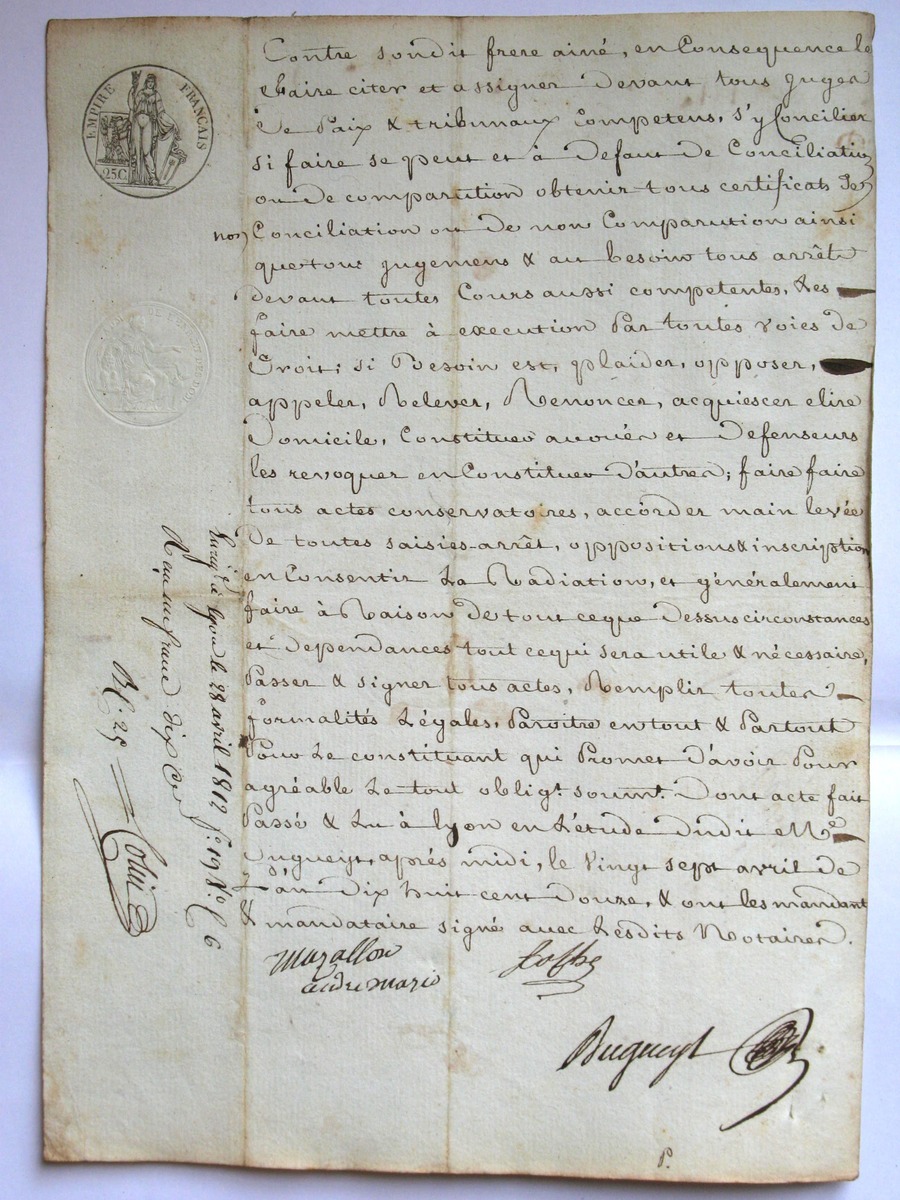 EMPIRE FRANCAIS
25C
Contre sondit frere ainé, en Consequence le
faire citer et assigner devant tous juges
de Paix & tribunaux Competens, s'y Concilier
si faire se peut et à defaut de Conciliation
ou de comparution obtenir tous certificats de
non Conciliation ou de non Comparution ainsi
que tous jugemens & au besoin tous arrêts
devant toutes Cours aussi competentes, Les
faire mettre à execution Par toutes voies de
Droit; si Besoin est, plaider, opposer,
appeler, Relever, Renoncer, acquiescer elire
Domicile, Constituer avoués et Defenseurs
les revoquer en Constituer d'autres; faire faire
tous actes conservatoires, accorder main levée
De toutes saisies-arrêt, oppositions & inscription
en Consentir La Radiation, et généralement
faire à Raison de tout ceque Dessus circonstances
et dependances tout cequi sera utile & nécessaire,
Passer & signer tous actes, Remplir toutes
formalités Légales, Paroitre en tout & Partout
Pour Le constituant qui Promet d'avoir Pour
agréable Le tout oblig.t soum.t Dont acte fait
Passé & Lu à lyon en L'étude Dudit Me
Dugueyt, après midi, le vingt sept avril de
L'an Dix huit cent Douze, & ont les mandant
& mandataire signé avec Lesdits Notaires.
Mazallon
andre marie
Dugueyt
à Lyon le 28 avril 1812 f.o 19 R.o C 6
Reçu un franc dix Ces
P.